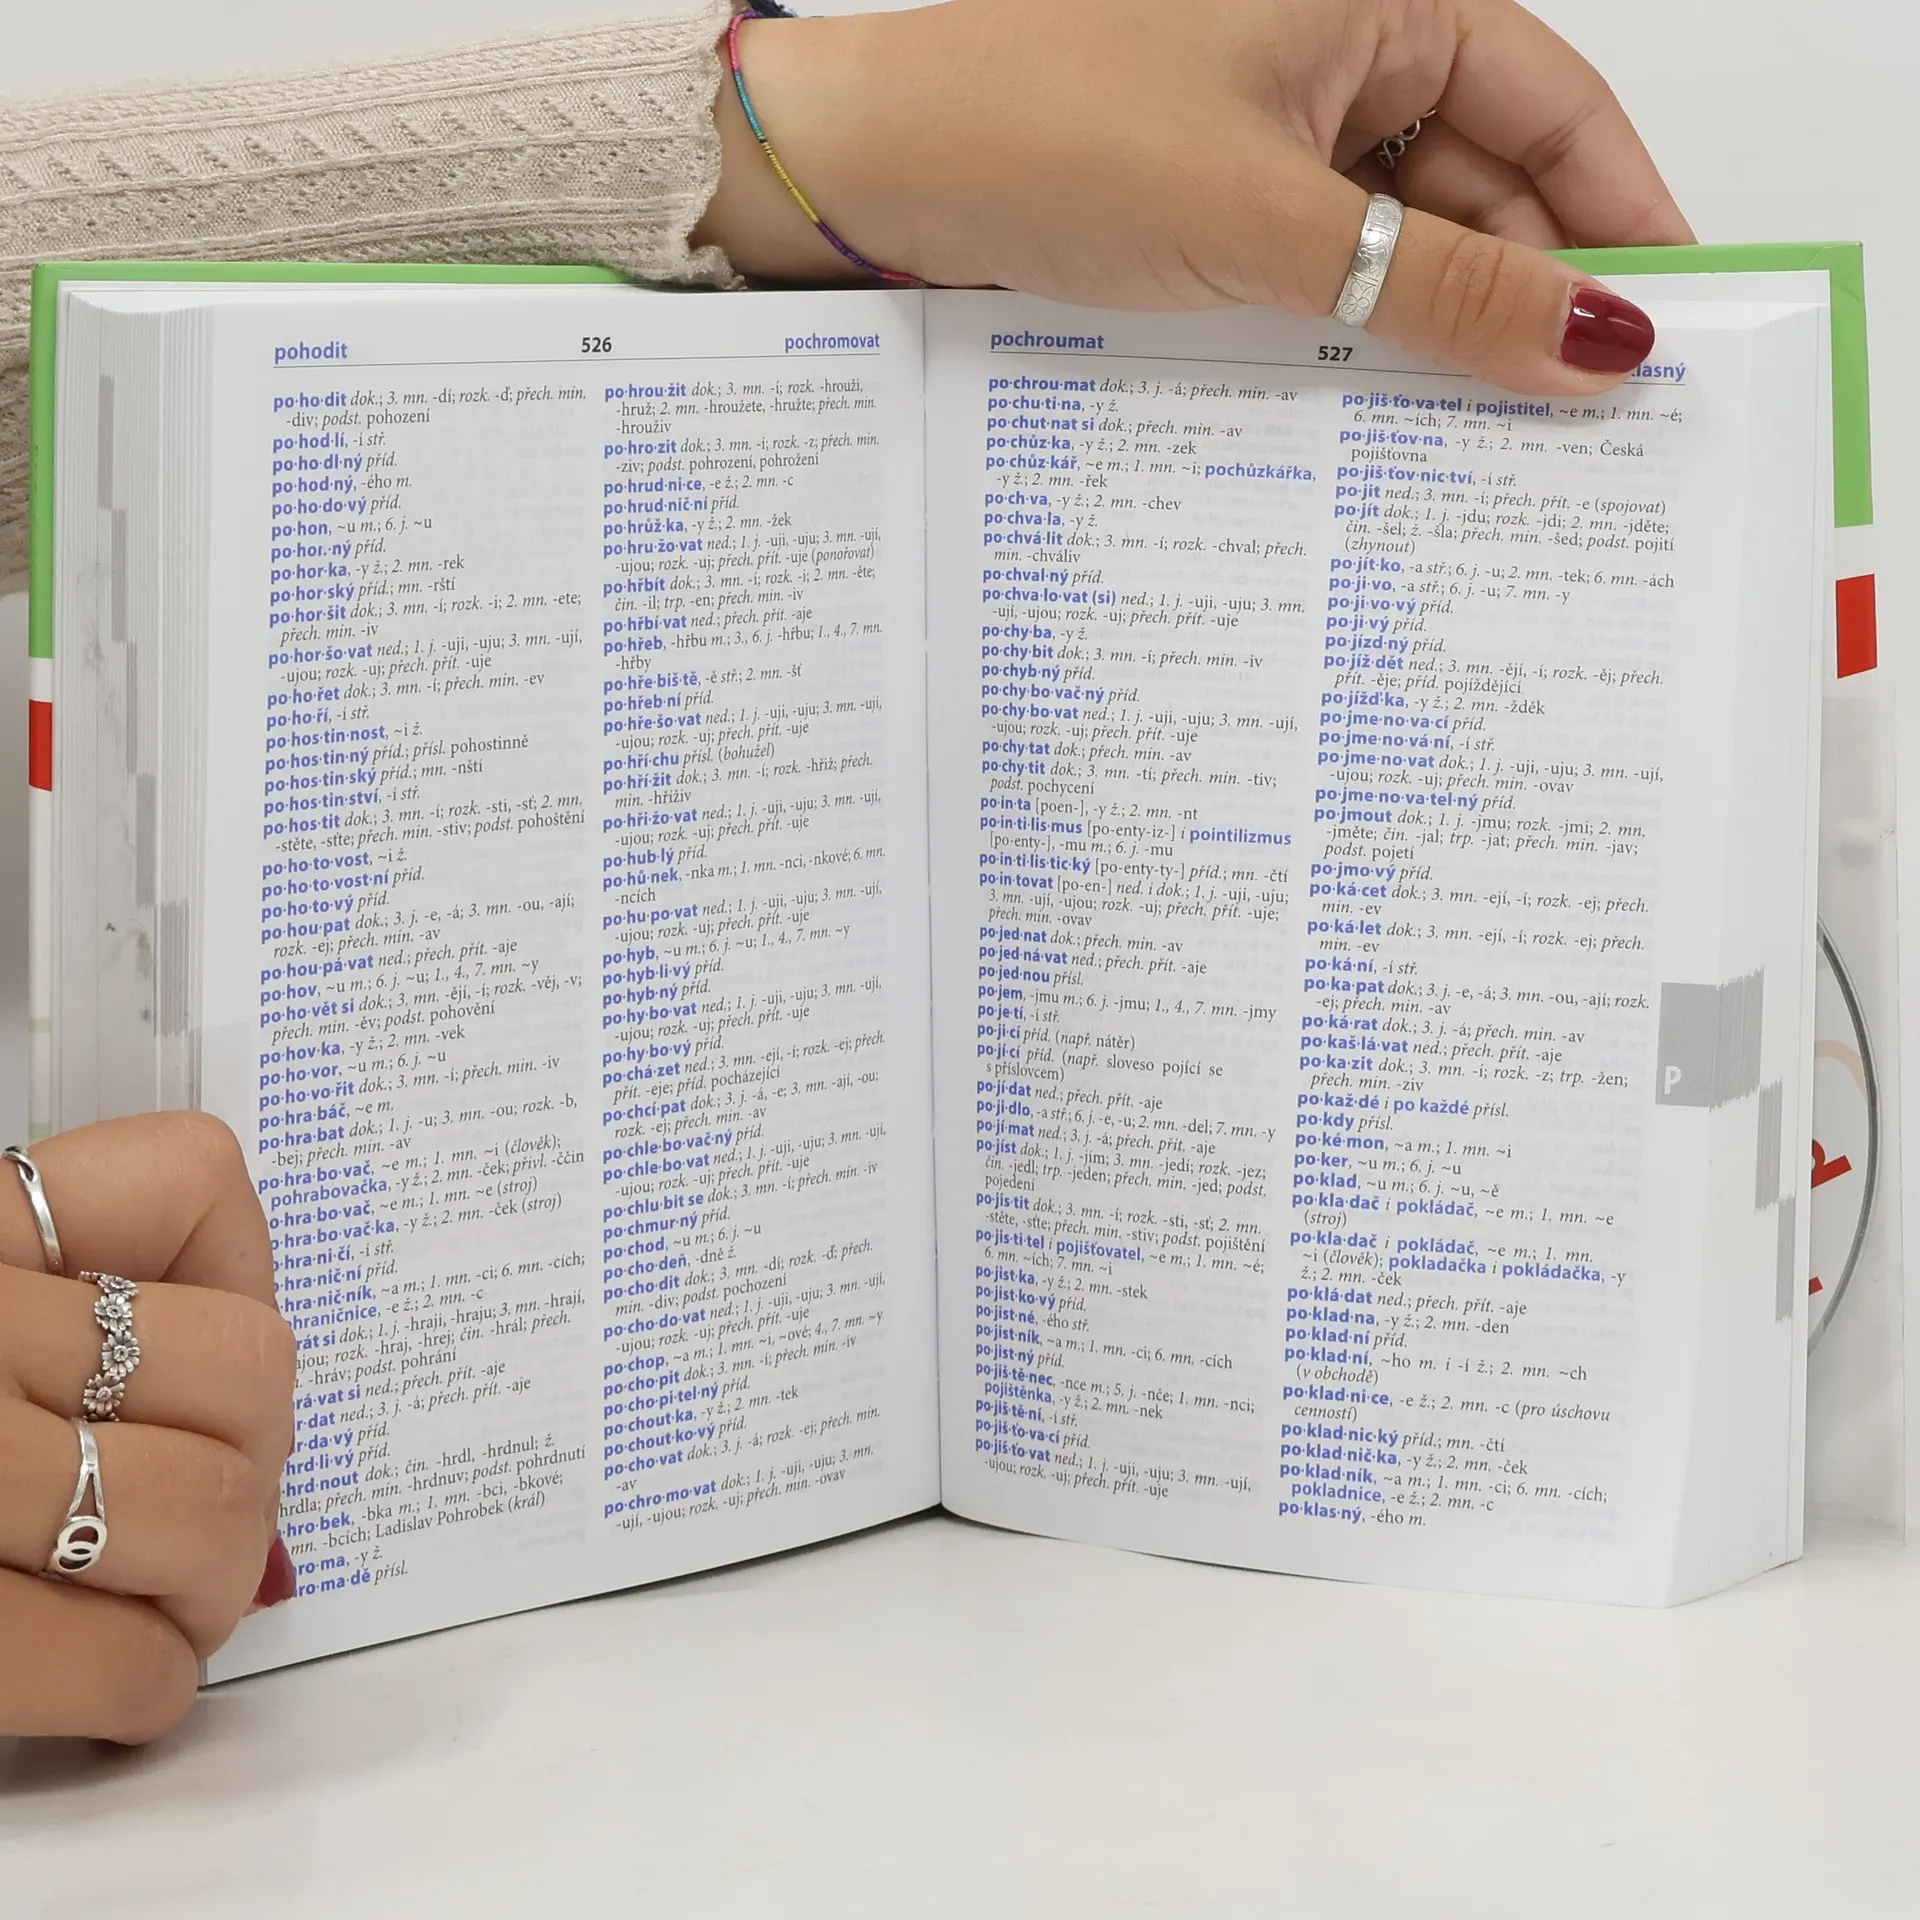 pohodit 526 pochromovat
po·ho·dit dok.; 3. mn. -dí; rozk. -ď; přech. min.
-div; podst. pohození
po·hod·lí, -í stř.
po·ho·dl·ný příd.
po·hod·ný, -ého m.
po·ho·do·vý příd.
po·hon, ~u m.; 6. j. ~u
po·hor·ný příd.
po·hor·ka, -y ž.; 2. mn. -rek
po·hor·ský příd.; mn. -rští
po·hor·šit dok.; 3. mn. -í; rozk. -i; 2. mn. -ete;
přech. min. -iv
po·hor·šo·vat ned.; 1. j. -uji, -uju; 3. mn. -ují,
-ujou; rozk. -uj; přech. přít. -uje
po·ho·řet dok.; 3. mn. -í; přech. min. -ev
po·ho·ří, -í stř.
po·hos·tin·nost, ~i ž.
po·hos·tin·ný příd.; přísl. pohostinně
po·hos·tin·ský příd.; mn. -nští
po·hos·tin·ství, -í stř.
po·hos·tit dok.; 3. mn. -í; rozk. -sti, -sť; 2. mn.
-stěte, -sťte; přech. min. -stiv; podst. pohoštění
po·ho·to·vost, ~i ž.
po·ho·to·vost·ní příd.
po·ho·to·vý příd.
po·hou·pat dok.; 3. j. -e, -á; 3. mn. -ou, -ají;
rozk. -ej; přech. min. -av
po·hou·pá·vat ned.; přech. přít. -aje
po·hov, ~u m.; 6. j. ~u; 1., 4., 7. mn. ~y
po·ho·vět si dok.; 3. mn. -ějí, -í; rozk. -věj, -v;
přech. min. -ěv; podst. pohovění
po·hov·ka, -y ž.; 2. mn. -vek
po·ho·vor, ~u m.; 6. j. ~u
po·ho·vo·řit dok.; 3. mn. -í; přech. min. -iv
po·hra·báč, ~e m.
po·hra·bat dok.; 1. j. -u; 3. mn. -ou; rozk. -b,
-bej; přech. min. -av
po·hra·bo·vač, ~e m.; 1. mn. ~i (člověk);
pohrabovačka, -y ž.; 2. mn. -ček; přivl. -ččin
o·hra·bo·vač, ~e m.; 1. mn. ~e (stroj)
o·hra·bo·vač·ka, -y ž.; 2. mn. -ček (stroj)
·hra·ni·čí, -í stř.
·hra·nič·ní příd.
·hra·nič·ník, ~a m.; 1. mn. -ci; 6. mn. -cích;
hraničnice, -e ž.; 2. mn. -c
rát si dok.; 1. j. -hraji, -hraju; 3. mn. -hrají,
ajou; rozk. -hraj, -hrej; čin. -hrál; přech.
. -hráv; podst. pohrání
rá·vat si ned.; přech. přít. -aje
r·dat ned.; 3. j. -á; přech. přít. -aje
r·da·vý příd.
hrd·li·vý příd.
·hrd·nout dok.; čin. -hrdl, -hrdnul; ž.
hrdla; přech. min. -hrdnuv; podst. pohrdnutí
·hro·bek, -bka m.; 1. mn. -bci, -bkové;
mn. -bcích; Ladislav Pohrobek (král)
ro·ma, -y ž.
ro·ma·dě přísl.
po·hrou·žit dok.; 3. mn. -í; rozk. -hrouži,
-hruž; 2. mn. -hroužete, -hružte; přech. min.
-hrouživ
po·hro·zit dok.; 3. mn. -í; rozk. -z; přech. min.
-ziv; podst. pohrození, pohrožení
po·hrud·ni·ce, -e ž.; 2. mn. -c
po·hrud·nič·ní příd.
po·hrůž·ka, -y ž.; 2. mn. -žek
po·hru·žo·vat ned.; 1. j. -uji, -uju; 3. mn. -ují,
-ujou; rozk. -uj; přech. přít. -uje (ponořovat)
po·hřbít dok.; 3. mn. -í; rozk. -i; 2. mn. -ěte;
čin. -il; trp. -en; přech. min. -iv
po·hřbí·vat ned.; přech. přít. -aje
po·hřeb, -hřbu m.; 3., 6. j. -hřbu; 1., 4., 7. mn.
-hřby
po·hře·biš·tě, -ě stř.; 2. mn. -šť
po·hřeb·ní příd.
po·hře·šo·vat ned.; 1. j. -uji, -uju; 3. mn. -ují,
-ujou; rozk. -uj; přech. přít. -uje
po·hří·chu přísl. (bohužel)
po·hří·žit dok.; 3. mn. -í; rozk. -hřiž; přech.
min. -hříživ
po·hři·žo·vat ned.; 1. j. -uji, -uju; 3. mn. -ují,
-ujou; rozk. -uj; přech. přít. -uje
po·hub·lý příd.
po·hů·nek, -nka m.; 1. mn. -nci, -nkové; 6. mn.
-ncích
po·hu·po·vat ned.; 1. j. -uji, -uju; 3. mn. -ují,
-ujou; rozk. -uj; přech. přít. -uje
po·hyb, ~u m.; 6. j. ~u; 1., 4., 7. mn. ~y
po·hyb·li·vý příd.
po·hyb·ný příd.
po·hy·bo·vat ned.; 1. j. -uji, -uju; 3. mn. -ují,
-ujou; rozk. -uj; přech. přít. -uje
po·hy·bo·vý příd.
po·chá·zet ned.; 3. mn. -ejí, -í; rozk. -ej; přech.
přít. -eje; příd. pocházející
po·chcí·pat dok.; 3. j. -á, -e; 3. mn. -ají, -ou;
rozk. -ej; přech. min. -av
po·chle·bo·vač·ný příd.
po·chle·bo·vat ned.; 1. j. -uji, -uju; 3. mn. -ují,
-ujou; rozk. -uj; přech. přít. -uje
po·chlu·bit se dok.; 3. mn. -í; přech. min. -iv
po·chmur·ný příd.
po·chod, ~u m.; 6. j. ~u
po·cho·deň, -dně ž.
po·cho·dit dok.; 3. mn. -dí; rozk. -ď; přech.
min. -div; podst. pochození
po·cho·do·vat ned.; 1. j. -uji, -uju; 3. mn. -ují,
-ujou; rozk. -uj; přech. přít. -uje
po·chop, ~a m.; 1. mn. ~i, ~ové; 4., 7. mn. ~y
po·cho·pit dok.; 3. mn. -í; přech. min. -iv
po·cho·pi·tel·ný příd.
po·chout·ka, -y ž.; 2. mn. -tek
po·chout·ko·vý příd.
po·cho·vat dok.; 3. j. -á; rozk. -ej; přech. min.
-av
po·chro·mo·vat dok.; 1. j. -uji, -uju; 3. mn.
-ují, -ujou; rozk. -uj; přech. min. -ovav
pochroumat 527 klasný
po·chrou·mat dok.; 3. j. -á; přech. min. -av
po·chu·ti·na, -y ž.
po·chut·nat si dok.; přech. min. -av
po·chůz·ka, -y ž.; 2. mn. -zek
po·chůz·kář, ~e m.; 1. mn. ~i; pochůzkářka,
-y ž.; 2. mn. -řek
po·ch·va, -y ž.; 2. mn. -chev
po·chva·la, -y ž.
po·chvá·lit dok.; 3. mn. -í; rozk. -chval; přech.
min. -chváliv
po·chval·ný příd.
po·chva·lo·vat (si) ned.; 1. j. -uji, -uju; 3. mn.
-ují, -ujou; rozk. -uj; přech. přít. -uje
po·chy·ba, -y ž.
po·chy·bit dok.; 3. mn. -í; přech. min. -iv
po·chyb·ný příd.
po·chy·bo·vač·ný příd.
po·chy·bo·vat ned.; 1. j. -uji, -uju; 3. mn. -ují,
-ujou; rozk. -uj; přech. přít. -uje
po·chy·tat dok.; přech. min. -av
po·chy·tit dok.; 3. mn. -tí; přech. min. -tiv;
podst. pochycení
po·in·ta [poen-], -y ž.; 2. mn. -nt
po·in·ti·lis·mus [po-enty-iz-] i pointilizmus
[po-enty-], -mu m.; 6. j. -mu
po·in·ti·lis·tic·ký [po-enty-ty-] příd.; mn. -čtí
po·in·tovat [po-en-] ned. i dok.; 1. j. -uji, -uju;
3. mn. -ují, -ujou; rozk. -uj; přech. přít. -uje;
přech. min. -ovav
po·jed·nat dok.; přech. min. -av
po·jed·ná·vat ned.; přech. přít. -aje
po·jed·nou přísl.
po·jem, -jmu m.; 6. j. -jmu; 1., 4., 7. mn. -jmy
po·je·tí, -í stř.
po·ji·cí příd. (např. nátěr)
po·jí·cí příd. (např. sloveso pojící se
s příslovcem)
po·jí·dat ned.; přech. přít. -aje
po·ji·dlo, -a stř.; 6. j. -e, -u; 2. mn. -del; 7. mn. -y
po·jí·mat ned.; 3. j. -á; přech. přít. -aje
po·jíst dok.; 1. j. -jím; 3. mn. -jedí; rozk. -jez;
čin. -jedl; trp. -jeden; přech. min. -jed; podst.
pojedení
po·jis·tit dok.; 3. mn. -í; rozk. -sti, -sť; 2. mn.
-stěte, -sťte; přech. min. -stiv; podst. pojištění
po·jis·ti·tel i pojišťovatel, ~e m.; 1. mn. ~é;
6. mn. ~ích; 7. mn. ~i
po·jist·ka, -y ž.; 2. mn. -stek
po·jist·ko·vý příd.
po·jist·né, -ého stř.
po·jist·ník, ~a m.; 1. mn. -ci; 6. mn. -cích
po·jist·ný příd.
po·jiš·tě·nec, -nce m.; 5. j. -nče; 1. mn. -nci;
pojištěnka, -y ž.; 2. mn. -nek
po·jiš·tě·ní, -í stř.
po·jiš·ťo·va·cí příd.
po·jiš·ťo·vat ned.; 1. j. -uji, -uju; 3. mn. -ují,
-ujou; rozk. -uj; přech. přít. -uje
po·jiš·ťo·va·tel i pojistitel, ~e m.; 1. mn. ~é;
6. mn. ~ích; 7. mn. ~i
po·jiš·ťov·na, -y ž.; 2. mn. -ven; Česká
pojišťovna
po·jiš·ťov·nic·tví, -í stř.
po·jit ned.; 3. mn. -í; přech. přít. -e (spojovat)
po·jít dok.; 1. j. -jdu; rozk. -jdi; 2. mn. -jděte;
čin. -šel; ž. -šla; přech. min. -šed; podst. pojití
(zhynout)
po·jít·ko, -a stř.; 6. j. -u; 2. mn. -tek; 6. mn. -ách
po·ji·vo, -a stř.; 6. j. -u; 7. mn. -y
po·ji·vo·vý příd.
po·ji·vý příd.
po·jízd·ný příd.
po·jíž·dět ned.; 3. mn. -ějí, -í; rozk. -ěj; přech.
přít. -ěje; příd. pojíždějící
po·jížď·ka, -y ž.; 2. mn. -žděk
po·jme·no·va·cí příd.
po·jme·no·vá·ní, -í stř.
po·jme·no·vat dok.; 1. j. -uji, -uju; 3. mn. -ují,
-ujou; rozk. -uj; přech. min. -ovav
po·jme·no·va·tel·ný příd.
po·jmout dok.; 1. j. -jmu; rozk. -jmi; 2. mn.
-jměte; čin. -jal; trp. -jat; přech. min. -jav;
podst. pojetí
po·jmo·vý příd.
po·ká·cet dok.; 3. mn. -ejí, -í; rozk. -ej; přech.
min. -ev
po·ká·let dok.; 3. mn. -ejí, -í; rozk. -ej; přech.
min. -ev
po·ká·ní, -í stř.
po·ka·pat dok.; 3. j. -e, -á; 3. mn. -ou, -ají; rozk.
-ej; přech. min. -av
po·ká·rat dok.; 3. j. -á; přech. min. -av
po·kaš·lá·vat ned.; přech. přít. -aje
po·ka·zit dok.; 3. mn. -í; rozk. -z; trp. -žen;
přech. min. -ziv
po·kaž·dé i po každé přísl.
po·kdy přísl.
po·ké·mon, ~a m.; 1. mn. ~i
po·ker, ~u m.; 6. j. ~u
po·klad, ~u m.; 6. j. ~u, ~ě
po·kla·dač i pokládač, ~e m.; 1. mn. ~e
(stroj)
po·kla·dač i pokládač, ~e m.; 1. mn.
~i (člověk); pokladačka i pokládačka, -y
ž.; 2. mn. -ček
po·klá·dat ned.; přech. přít. -aje
po·klad·na, -y ž.; 2. mn. -den
po·klad·ní příd.
po·klad·ní, ~ho m. i -í ž.; 2. mn. ~ch
(v obchodě)
po·klad·ni·ce, -e ž.; 2. mn. -c (pro úschovu
cenností)
po·klad·nic·ký příd.; mn. -čtí
po·klad·nič·ka, -y ž.; 2. mn. -ček
po·klad·ník, ~a m.; 1. mn. -ci; 6. mn. -cích;
pokladnice, -e ž.; 2. mn. -c
po·klas·ný, -ého m.
P